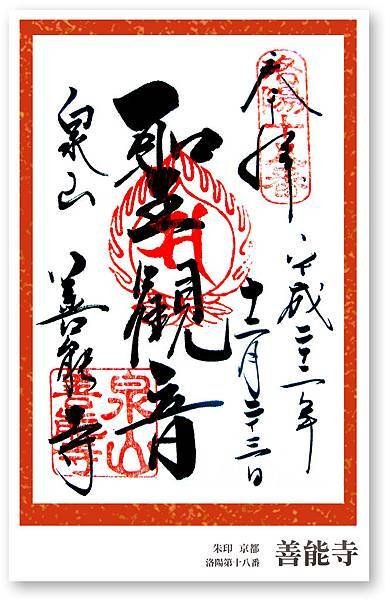 奉拝
洛陽十八番
平成二二年
十二月二三日
聖観音
泉山
善能寺
泉山
善能寺
朱印 京都
洛陽第十八番
善能寺